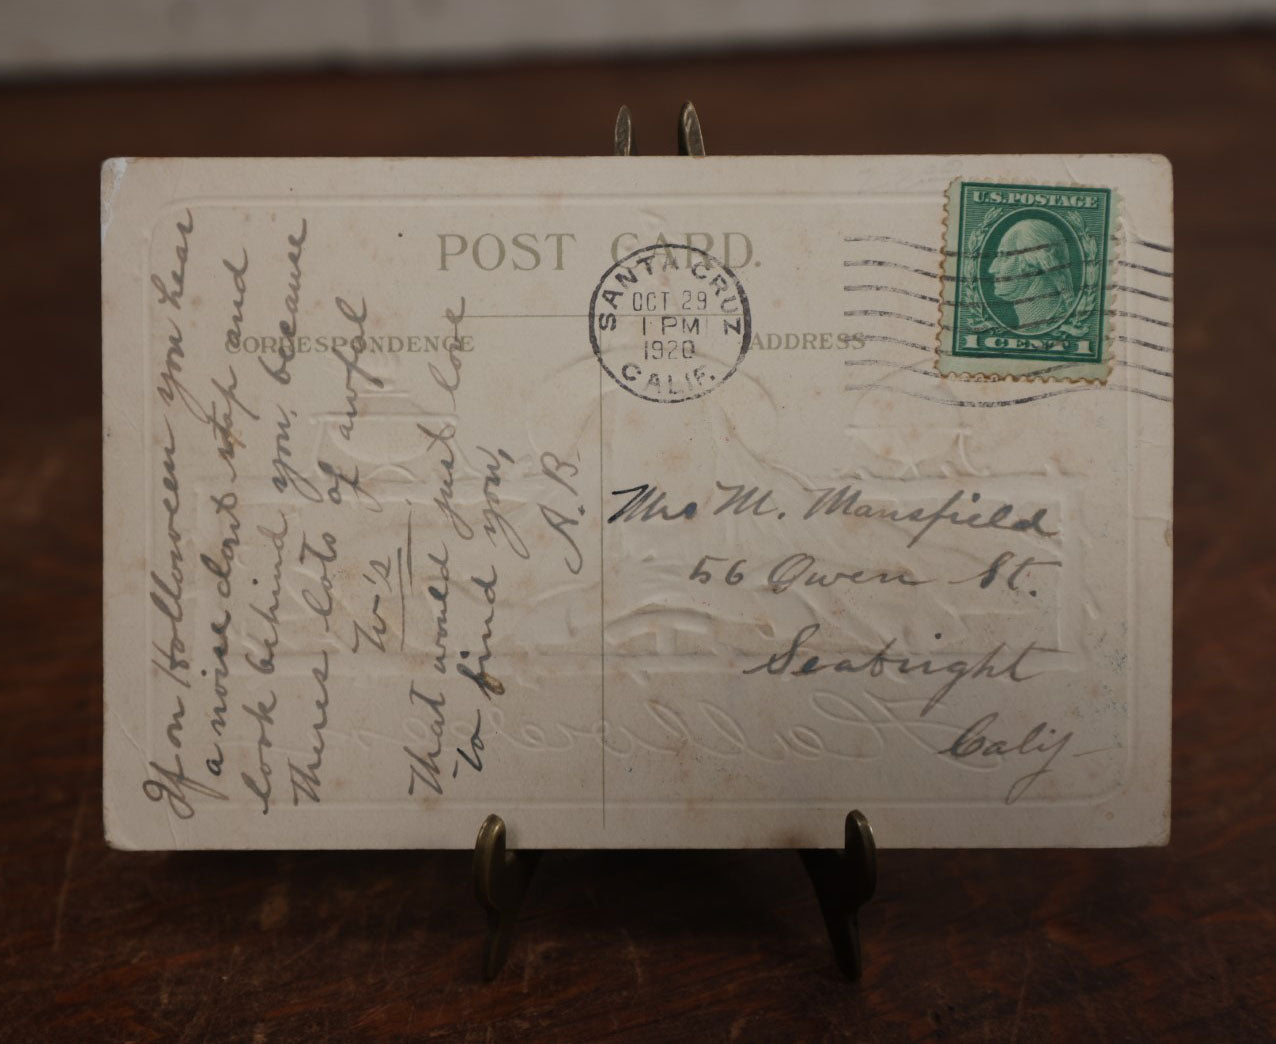 POST CARD.
CORRESPONDENCE
ADDRESS
U.S. POSTAGE
1 CENTS 1
SANTA CRUZ
OCT 29
1 PM
1920
CALIF.
If on Holloween you hear
a noise dont stop and
look behind you, because
Theres lots of awful
W's
That would just love
to find you,
A. B.
Mrs M. Mansfield
56 Owen St.
Seabright
Calif